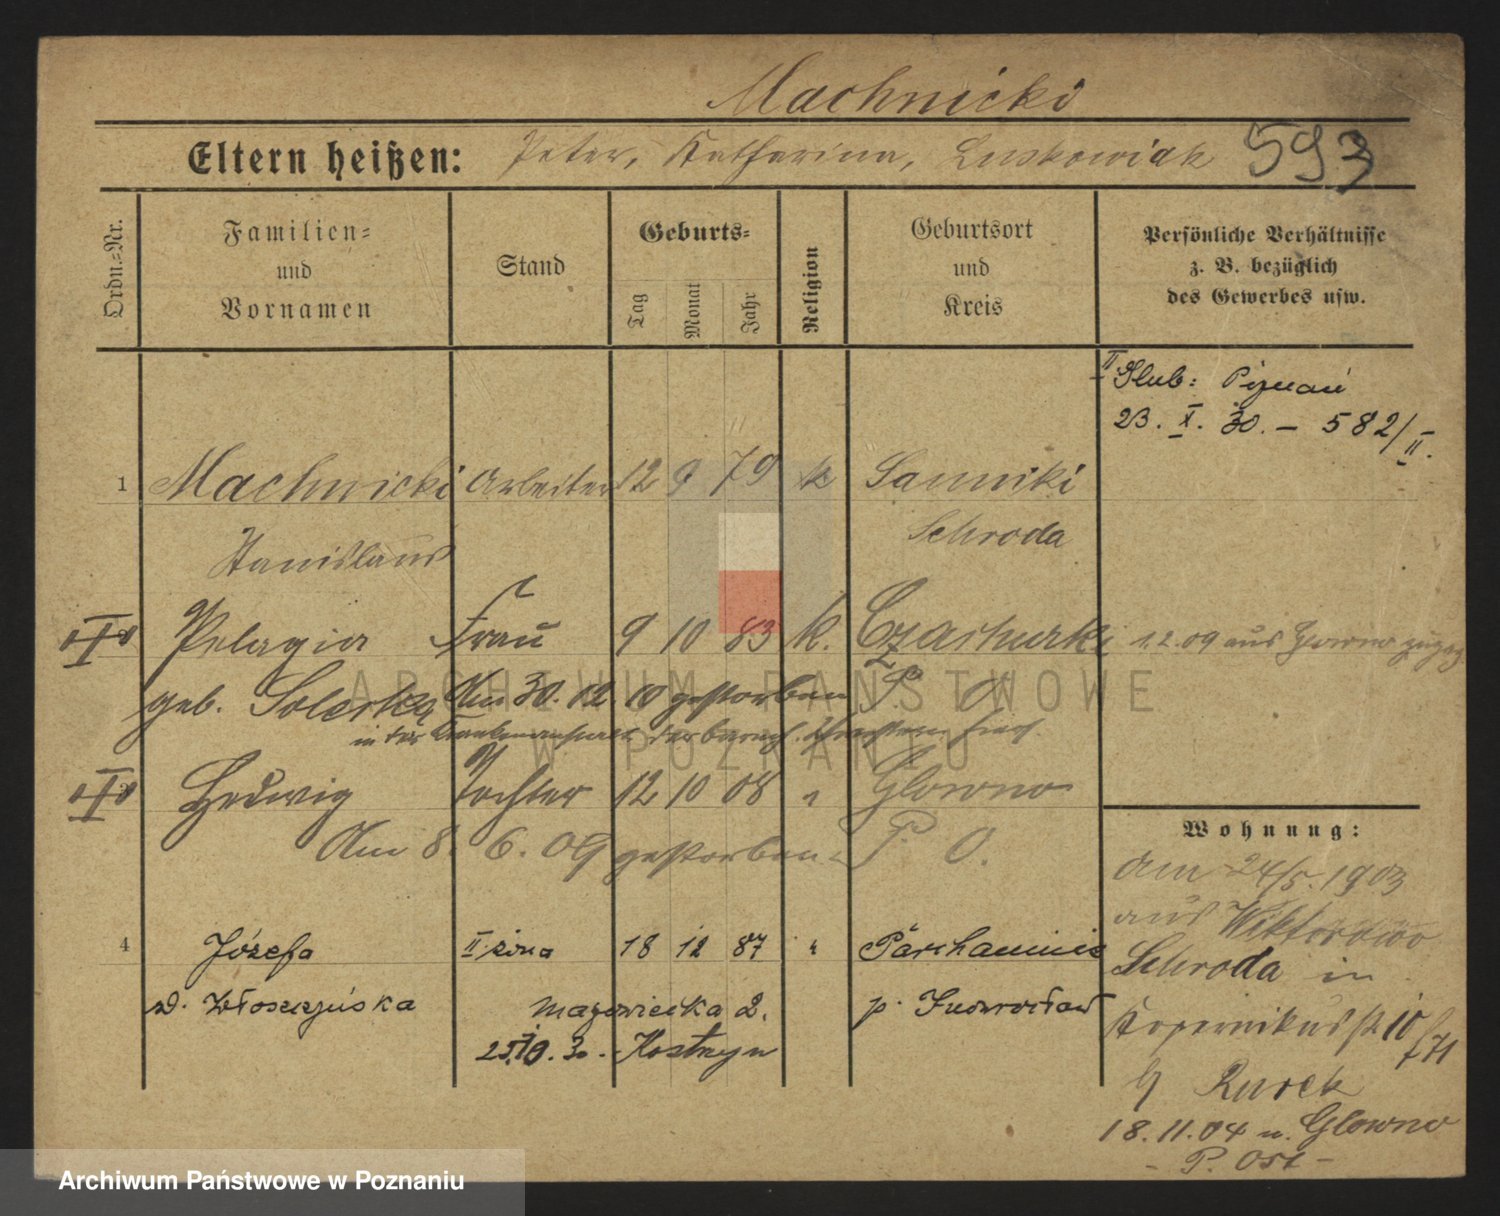 Machnicki
Eltern heißen: Peter, Katharina, Luskowiak 593
Ordn.-Nr.
Familien-
und
Vornamen
Stand
Geburts-
Tag
Monat
Jahr
Religion
Geburtsort
und
Kreis
Persönliche Verhältnisse
z. B. bezüglich
des Gewerbes usw.
II Ślub: Poznań
23. X. 30. – 582/II.
1 Machnicki Arbeiter 12 9 79 k Sanniki
Stanislaus Schroda
Pelagia Frau 9 10 83 k. 1.2.09 aus Glowno
geb. Am 30.12.10 gestorben P. O.
in der
Hedwig Tochter 12 10 08 " Glowno
Am 8. 6. 09 gestorben P. O.
Wohnung:
am 24/5. 1903
aus Wiktorowo
Schroda in
Kopernikusstr 10
b/ Rurek
18.11.04 n. Glowno
- P. Ost -
4 Józefa II żona 18 12 87 "
Mazowiecka 2.
Kostrzyn
ARCHIWUM PAŃSTWOWE
W POZNANIU
Archiwum Państwowe w Poznaniu